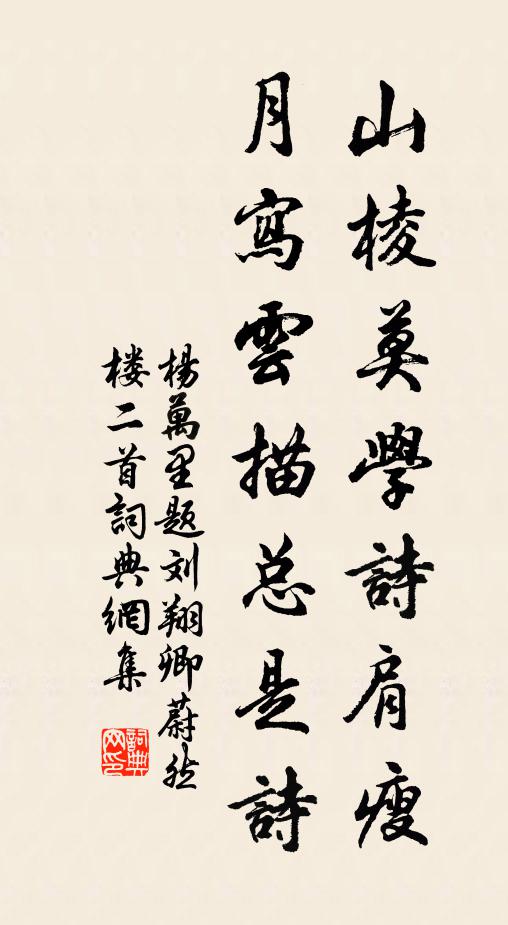 山棱莫學詩肩瘦
月寫雲描总是詩
楊萬里题刘翔卿蔚然
楼二首詞典網集
詞典网印